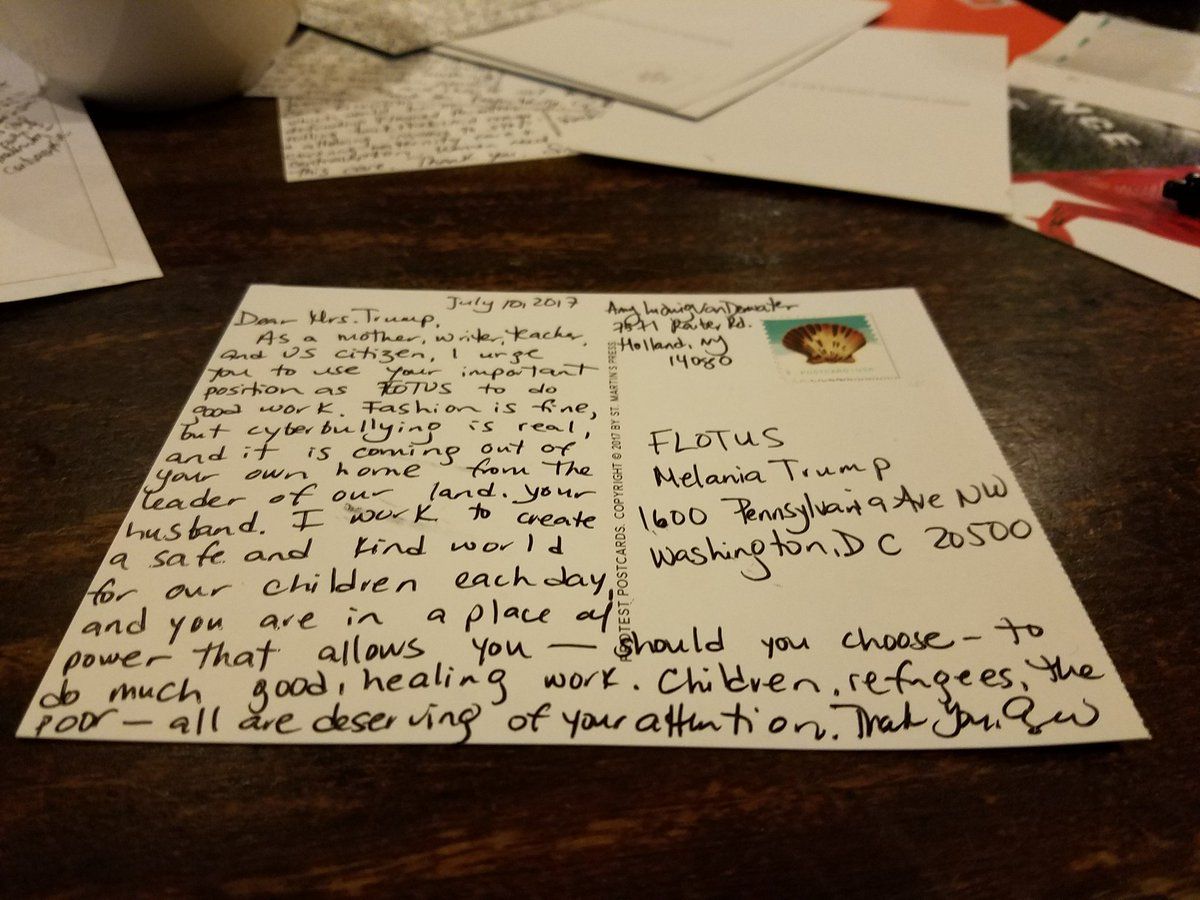 July 10, 2017
Dear Mrs. Trump,
As a mother, writer, teacher,
and US citizen, I urge
you to use your important
position as FLOTUS to do
good work. Fashion is fine,
but cyberbullying is real,
and it is coming out of
your own home from the
leader of our land. your
husband. I work to create
a safe and kind world
for our children each day
and you are in a place of
power that allows you — should you choose — to
do much good, healing work. Children, refugees, the
poor — all are deserving of your attention. Thank You.
Amy Ludwig VanDerwater
Rd.
Holland, NY
14080
POSTCARD USA
PROTEST POSTCARDS. COPYRIGHT © 2017 BY ST. MARTIN'S PRESS
FLOTUS
Melania Trump
1600 Pennsylvania Ave NW
Washington, DC 20500
this
Thank you
NCE